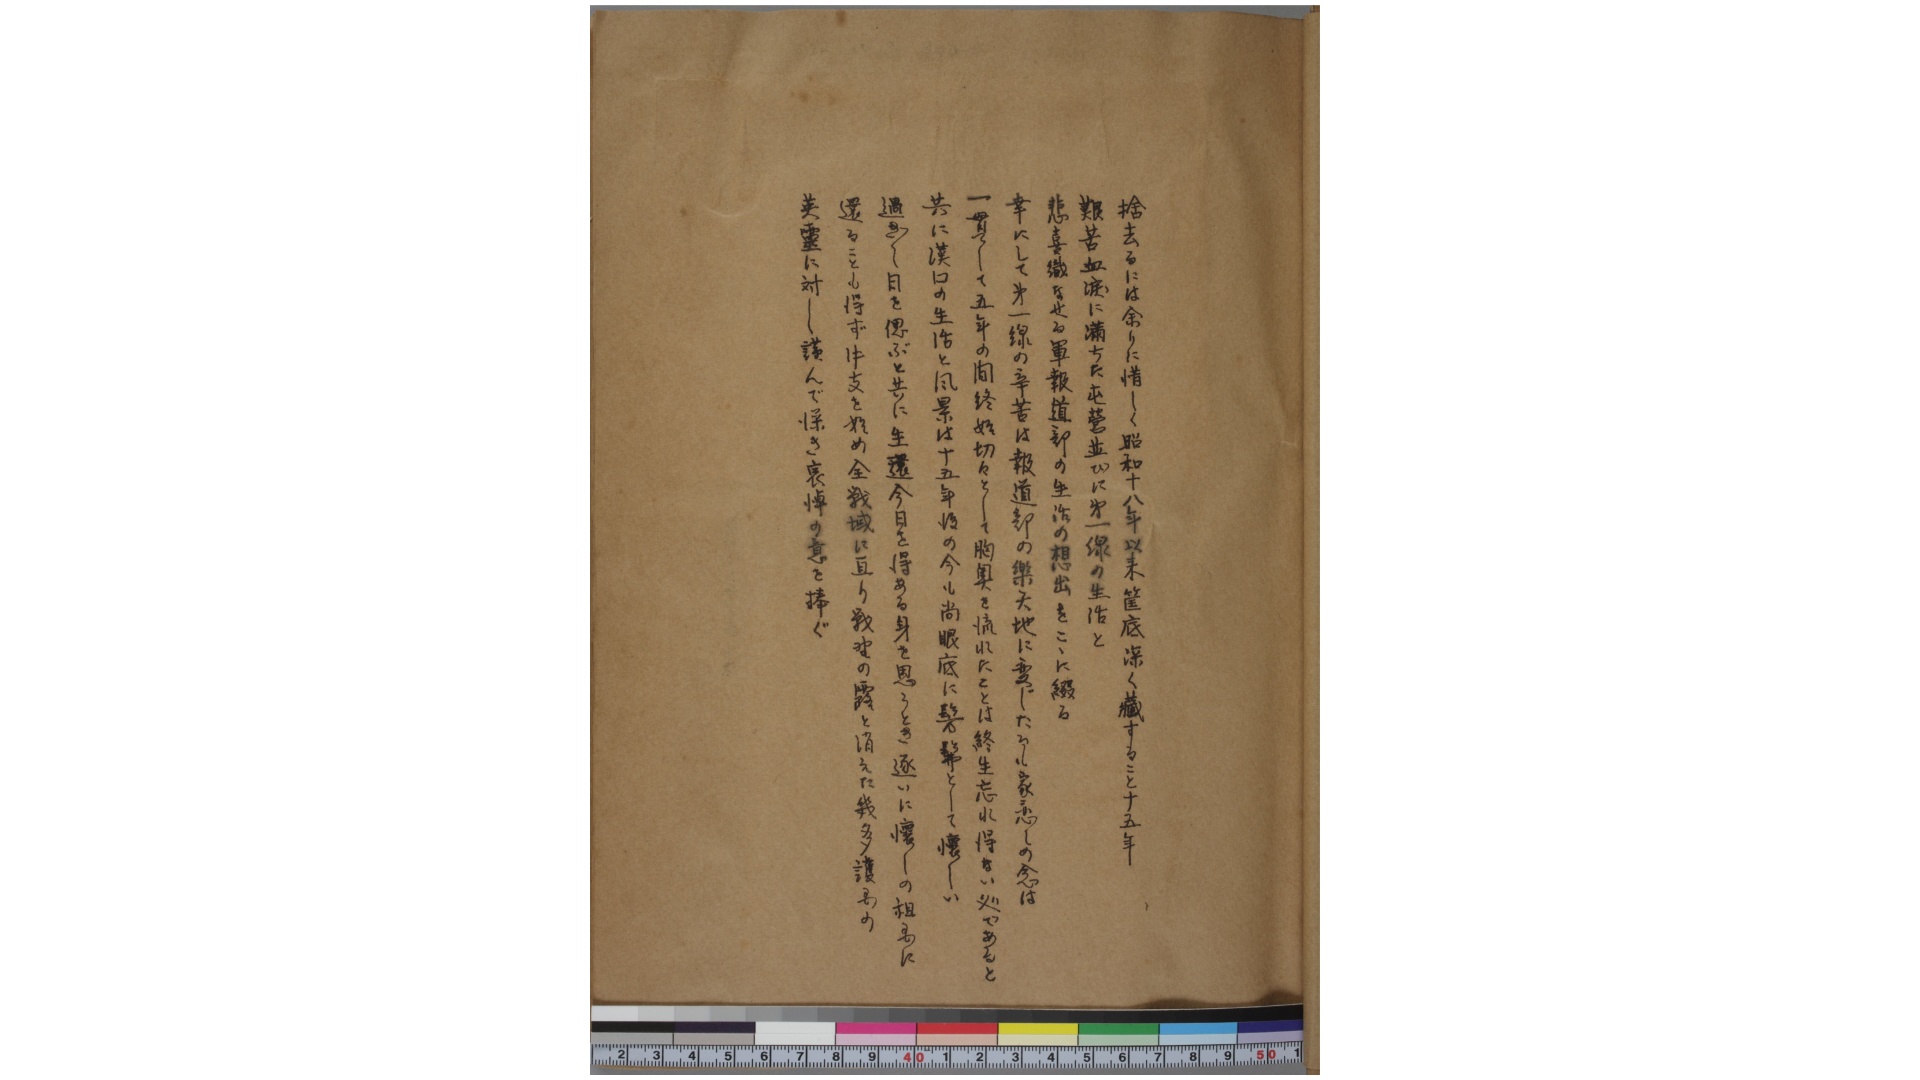 捨去るには余りに惜しく昭和十八年以来筐底深く藏すること十五年
艱苦血涙に満ちた屯営並びに第一線の生活と
悲喜織なせる軍報道部の生活の想出をこゝに綴る
幸にして第一線の辛苦は報道部の樂天地に変じたるも家恋しの念は
一貫して五年の間終始切々として胸奥を流れたことは終生忘れ得ない処であると
共に漢口の生活と風景は十五年後の今も尚眼底に髣髴として懐しい
過ぎし日を偲ぶと共に生還今日を得ある身を思うとき逐いに懐しの祖国に
還ることも得ず中支を始め全戦域に亘り戦野の露と消えた幾多護国の
英霊に対し謹んで深き哀悼の意を捧ぐ
2 3 4 5 6 7 8 9 40 1 2 3 4 5 6 7 8 9 50 1